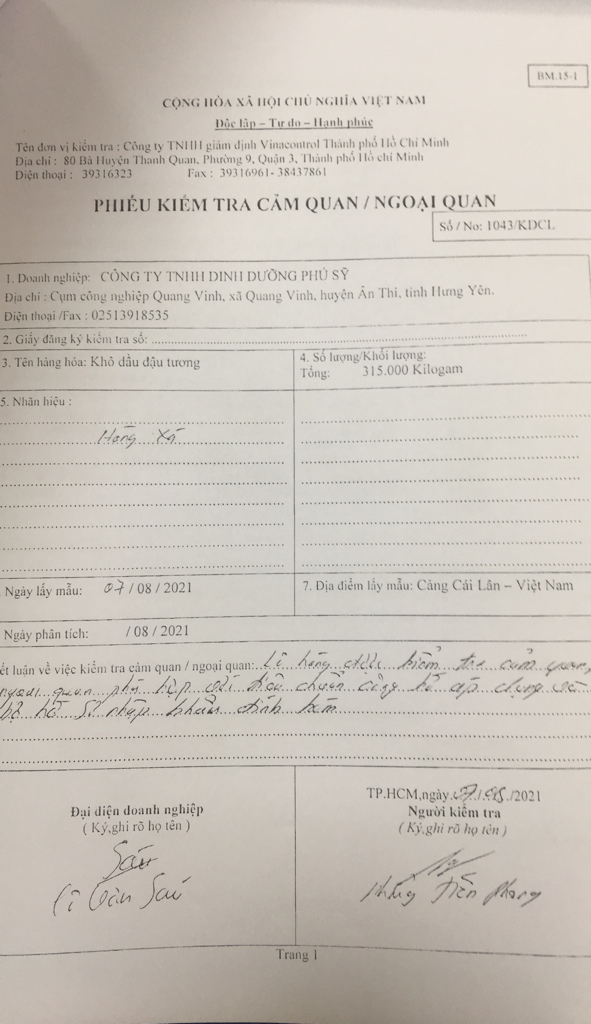 BM.15-1
CỘNG HÒA XÃ HỘI CHỦ NGHĨA VIỆT NAM
Độc lập – Tự do – Hạnh phúc
Tên đơn vị kiểm tra : Công ty TNHH giám định Vinacontrol Thành phố Hồ Chí Minh
Địa chỉ : 80 Bà Huyện Thanh Quan, Phường 9, Quận 3, Thành phố Hồ chí Minh
Điện thoại : 39316323 Fax : 39316961- 38437861
PHIẾU KIỂM TRA CẢM QUAN / NGOẠI QUAN
Số / No: 1043/KDCL
1. Doanh nghiệp: CÔNG TY TNHH DINH DƯỠNG PHÚ SỸ
Địa chỉ : Cụm công nghiệp Quang Vinh, xã Quang Vinh, huyện Ân Thi, tỉnh Hưng Yên.
Điện thoại /Fax : 02513918535
2. Giấy đăng ký kiểm tra số:
3. Tên hàng hóa: Khô dầu đậu tương
4. Số lượng/Khối lượng:
Tổng: 315.000 Kilogam
5. Nhãn hiệu :
Hàng Xá
Ngày lấy mẫu: 07 / 08 / 2021
7. Địa điểm lấy mẫu: Cảng Cái Lân – Việt Nam
Ngày phân tích: / 08 / 2021
ết luận về việc kiểm tra cảm quan / ngoại quan: Lô hàng được kiểm tra cảm quan,
ngoại quan phù hợp với tiêu chuẩn công bố áp dụng và
hồ sơ nhập khẩu đính kèm
TP.HCM,ngày 07/08/2021
Đại diện doanh nghiệp
( Ký,ghi rõ họ tên )
Người kiểm tra
( Ký,ghi rõ họ tên )
Văn Sáu
Tiến Phong
Trang 1